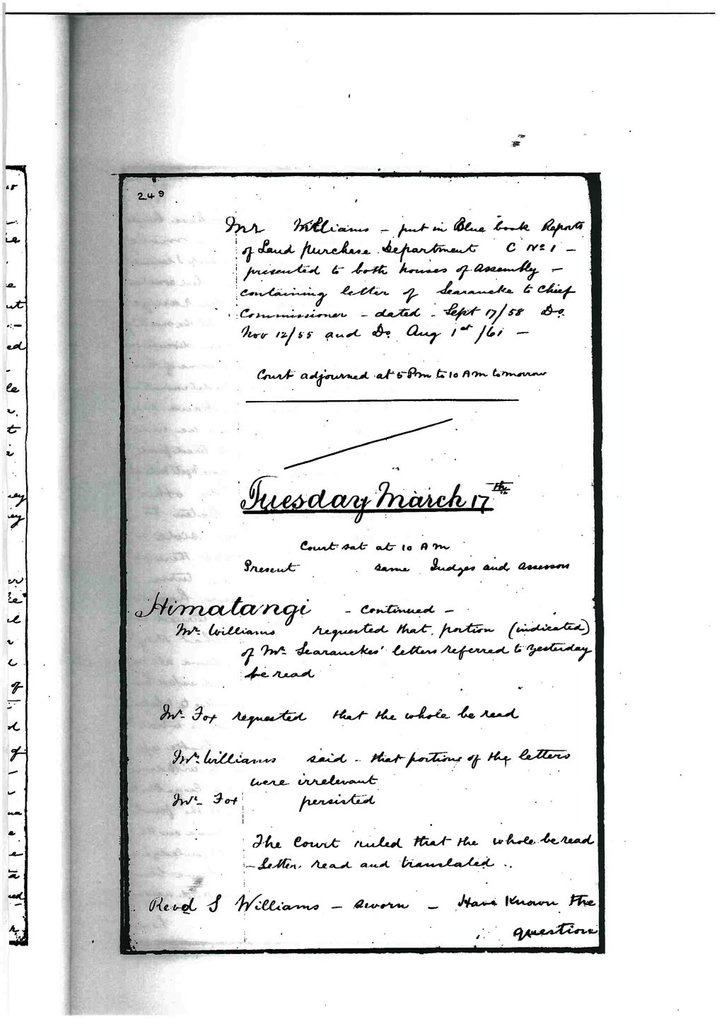 249
Mr Williams - put in Blue book Reports
of Land Purchase Department C No 1 -
presented to both houses of Assembly -
containing letter of Searancke to Chief
Commissioner - dated - Sept 17/58 Do
Nov 12/55 and Do Aug 1st /61 -
Court adjourned at 5 Pm to 10 A m tomorrow
Tuesday March 17th
Court sat at 10 A m
Present same Judges and Assessor
Himatangi - continued -
Mr Williams requested that portion (indicated)
of Mr Searanckes' letters referred to yesterday
be read
Mr Fox requested that the whole be read
Mr Williams said - that portions of the letters
were irrelevant
Mr Fox persisted
The Court ruled that the whole be read
- Letter read and translated ..
Revd S Williams - sworn - Have Known the
question